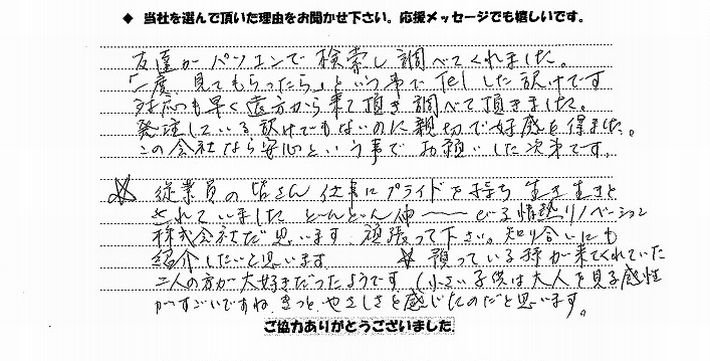 ◆ 当社を選んで頂いた理由をお聞かせ下さい。応援メッセージでも嬉しいです。
友達がパソコンで検索し調べてくれました。
「一度見てもらったら」という事でTelした訳けです
対応も早く遠方から来て頂き調べて頂きました。
発注している訳けでもないのに親切で好感を得ました。
この会社なら安心という事でお願いした次第です。
☆ 従業員の皆さん仕事にプライドを持ち生き生きと
されていました どんどん伸〜〜びる情熱リノベーション
株式会社だ思います 頑張って下さい。知り合いにも
紹介したいと思います ☆ 預っている孫が来てくれていた
二人の方が大好きだったようです（小さい子供は大人を見る感性
がすごいですね きっと やさしさを感じたのだと思います。
ご協力ありがとうございました